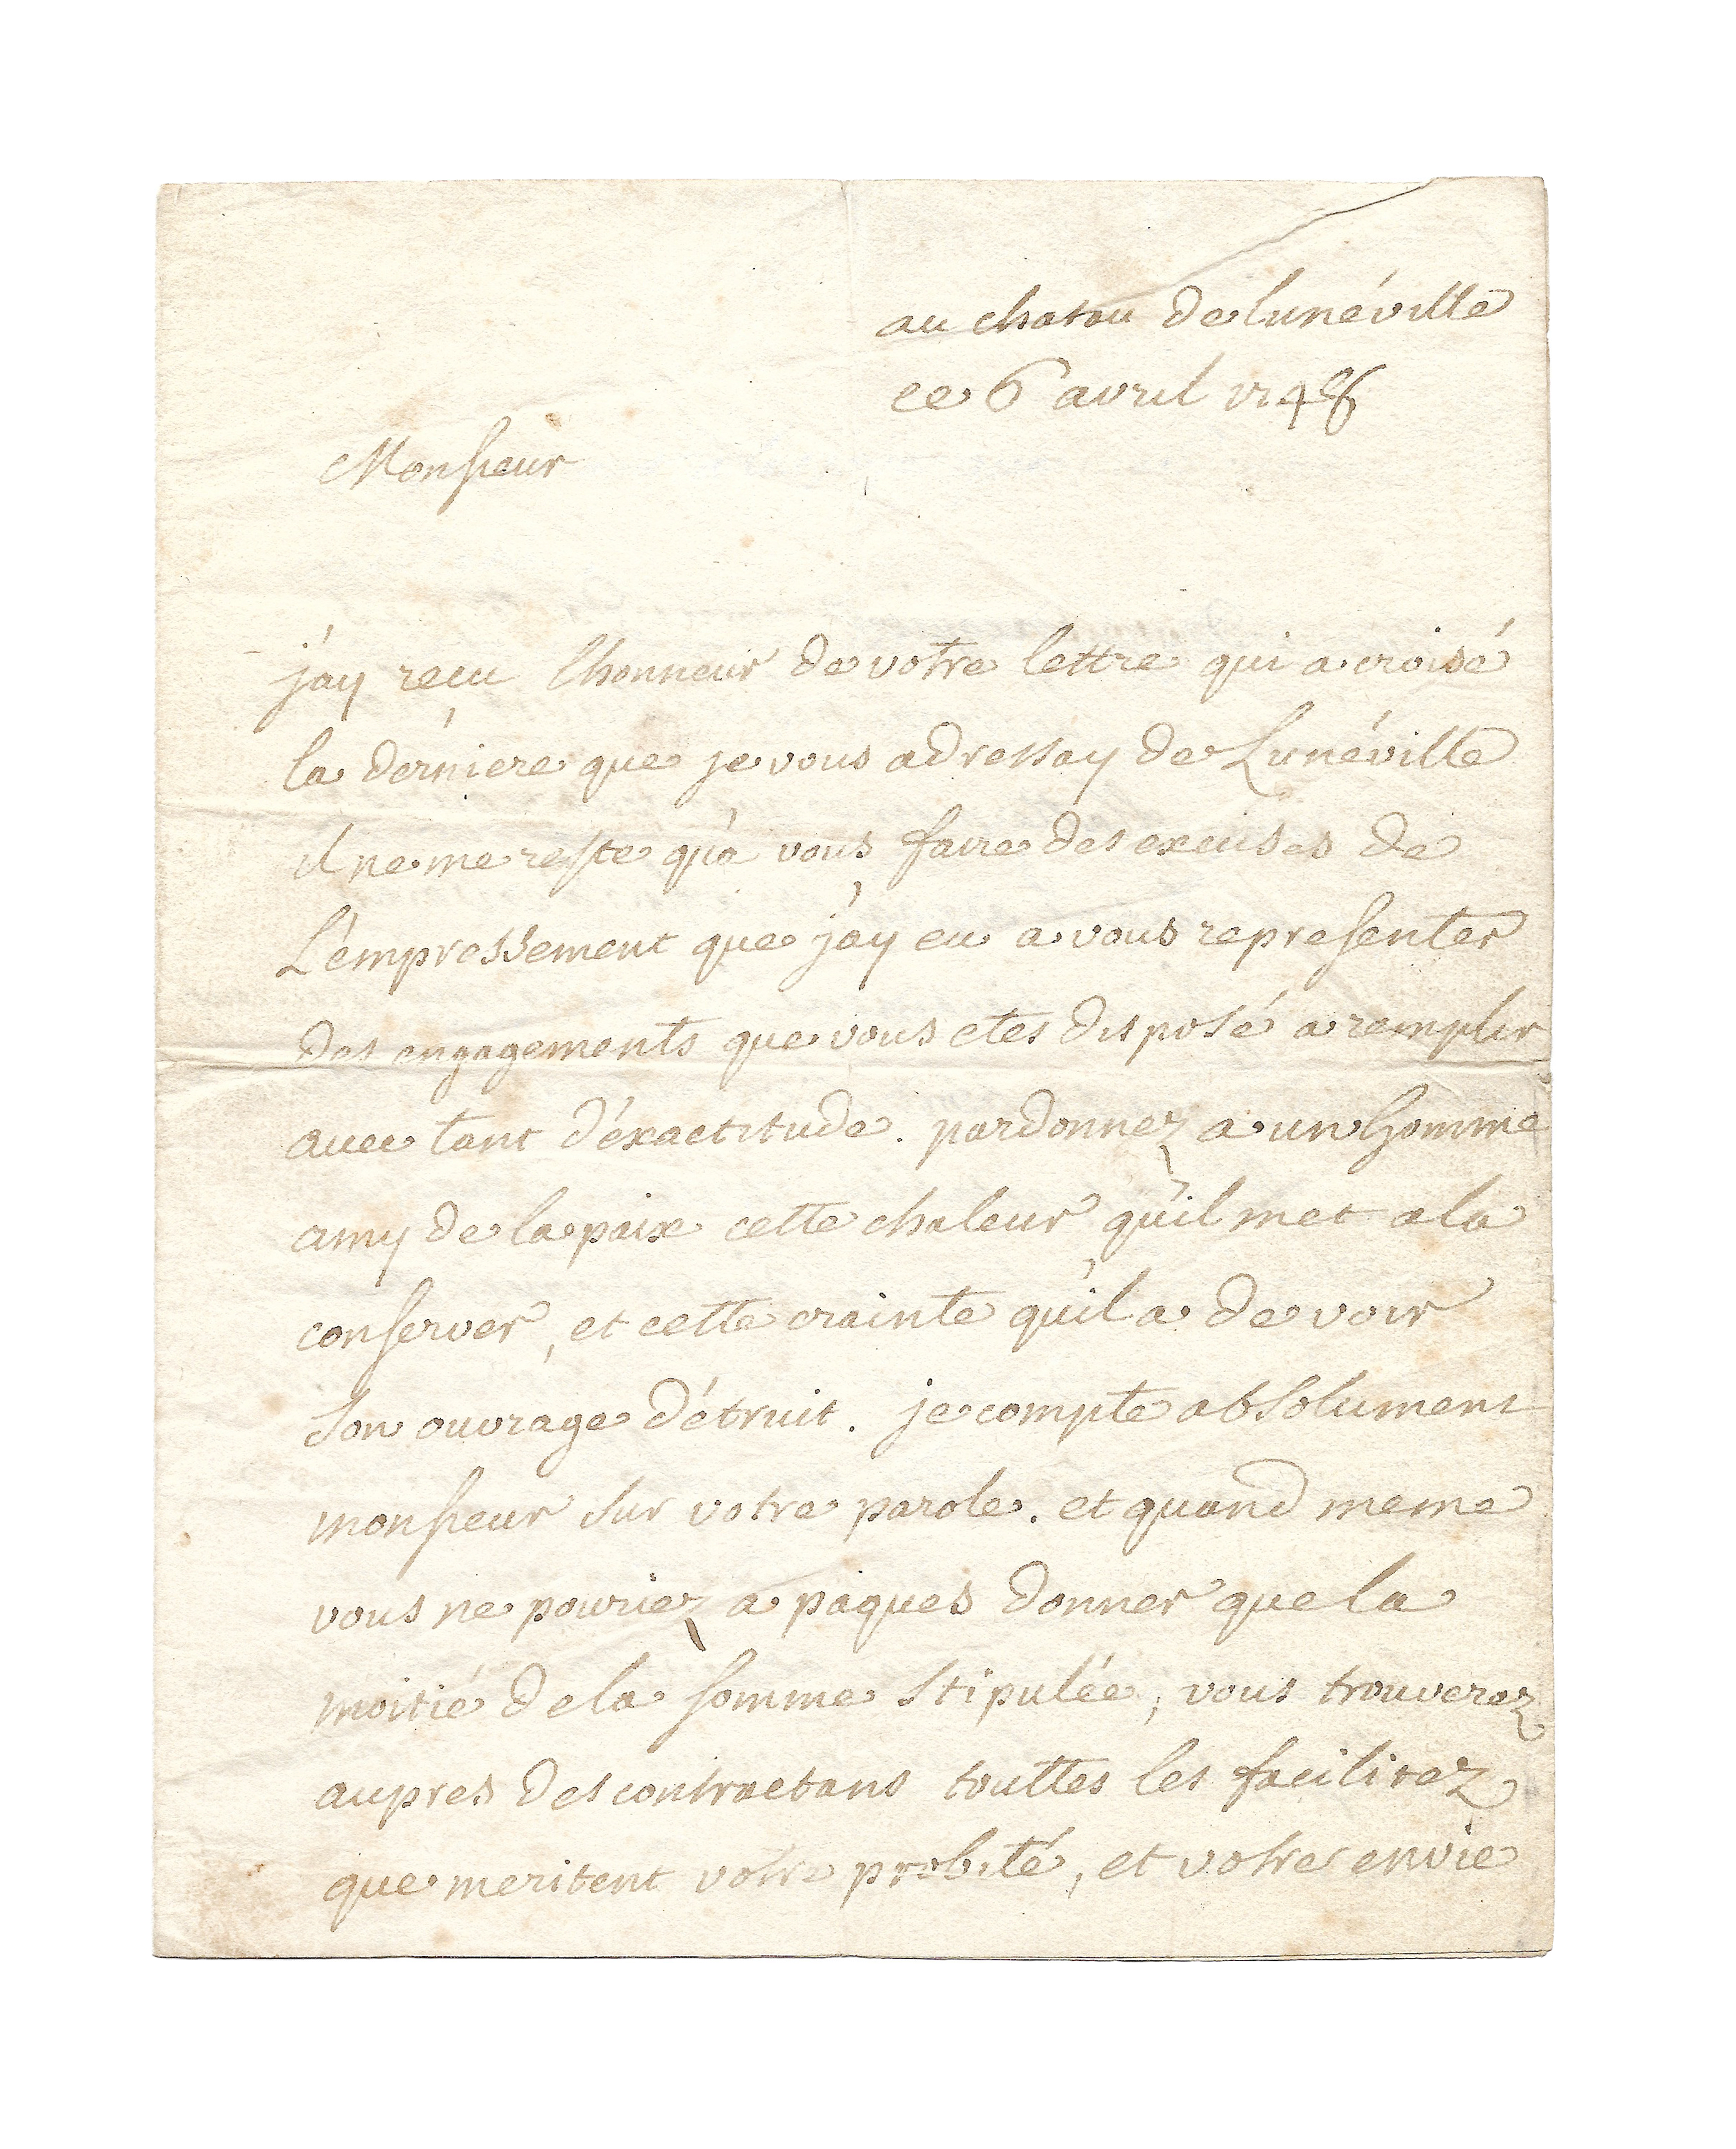 au chatau de lunéville
ce 6 avril 1748
Monsieur
j'ay recu lhonneur de votre lettre qui a croisé
la dérniere que je vous adressay de Lunéville
il ne me reste qu'a vous faire des excuses de
L'empressement que j'ay eu a vous representer
des engagements que vous etes disposé a remplir
avec tant d'éxactitude. pardonnez a un homme
amy de la paix cette chaleur qu'il met a la
conserver, et cette crainte qu'il a de voir
son ouvrage détruit. je compte absolument
monsieur sur votre parole. et quand meme
vous ne pouriez a paques donner que la
moitié de la somme stipulée, vous trouverez
aupres des contractans touttes les facilitez
que meritent votre probité, et votre envie